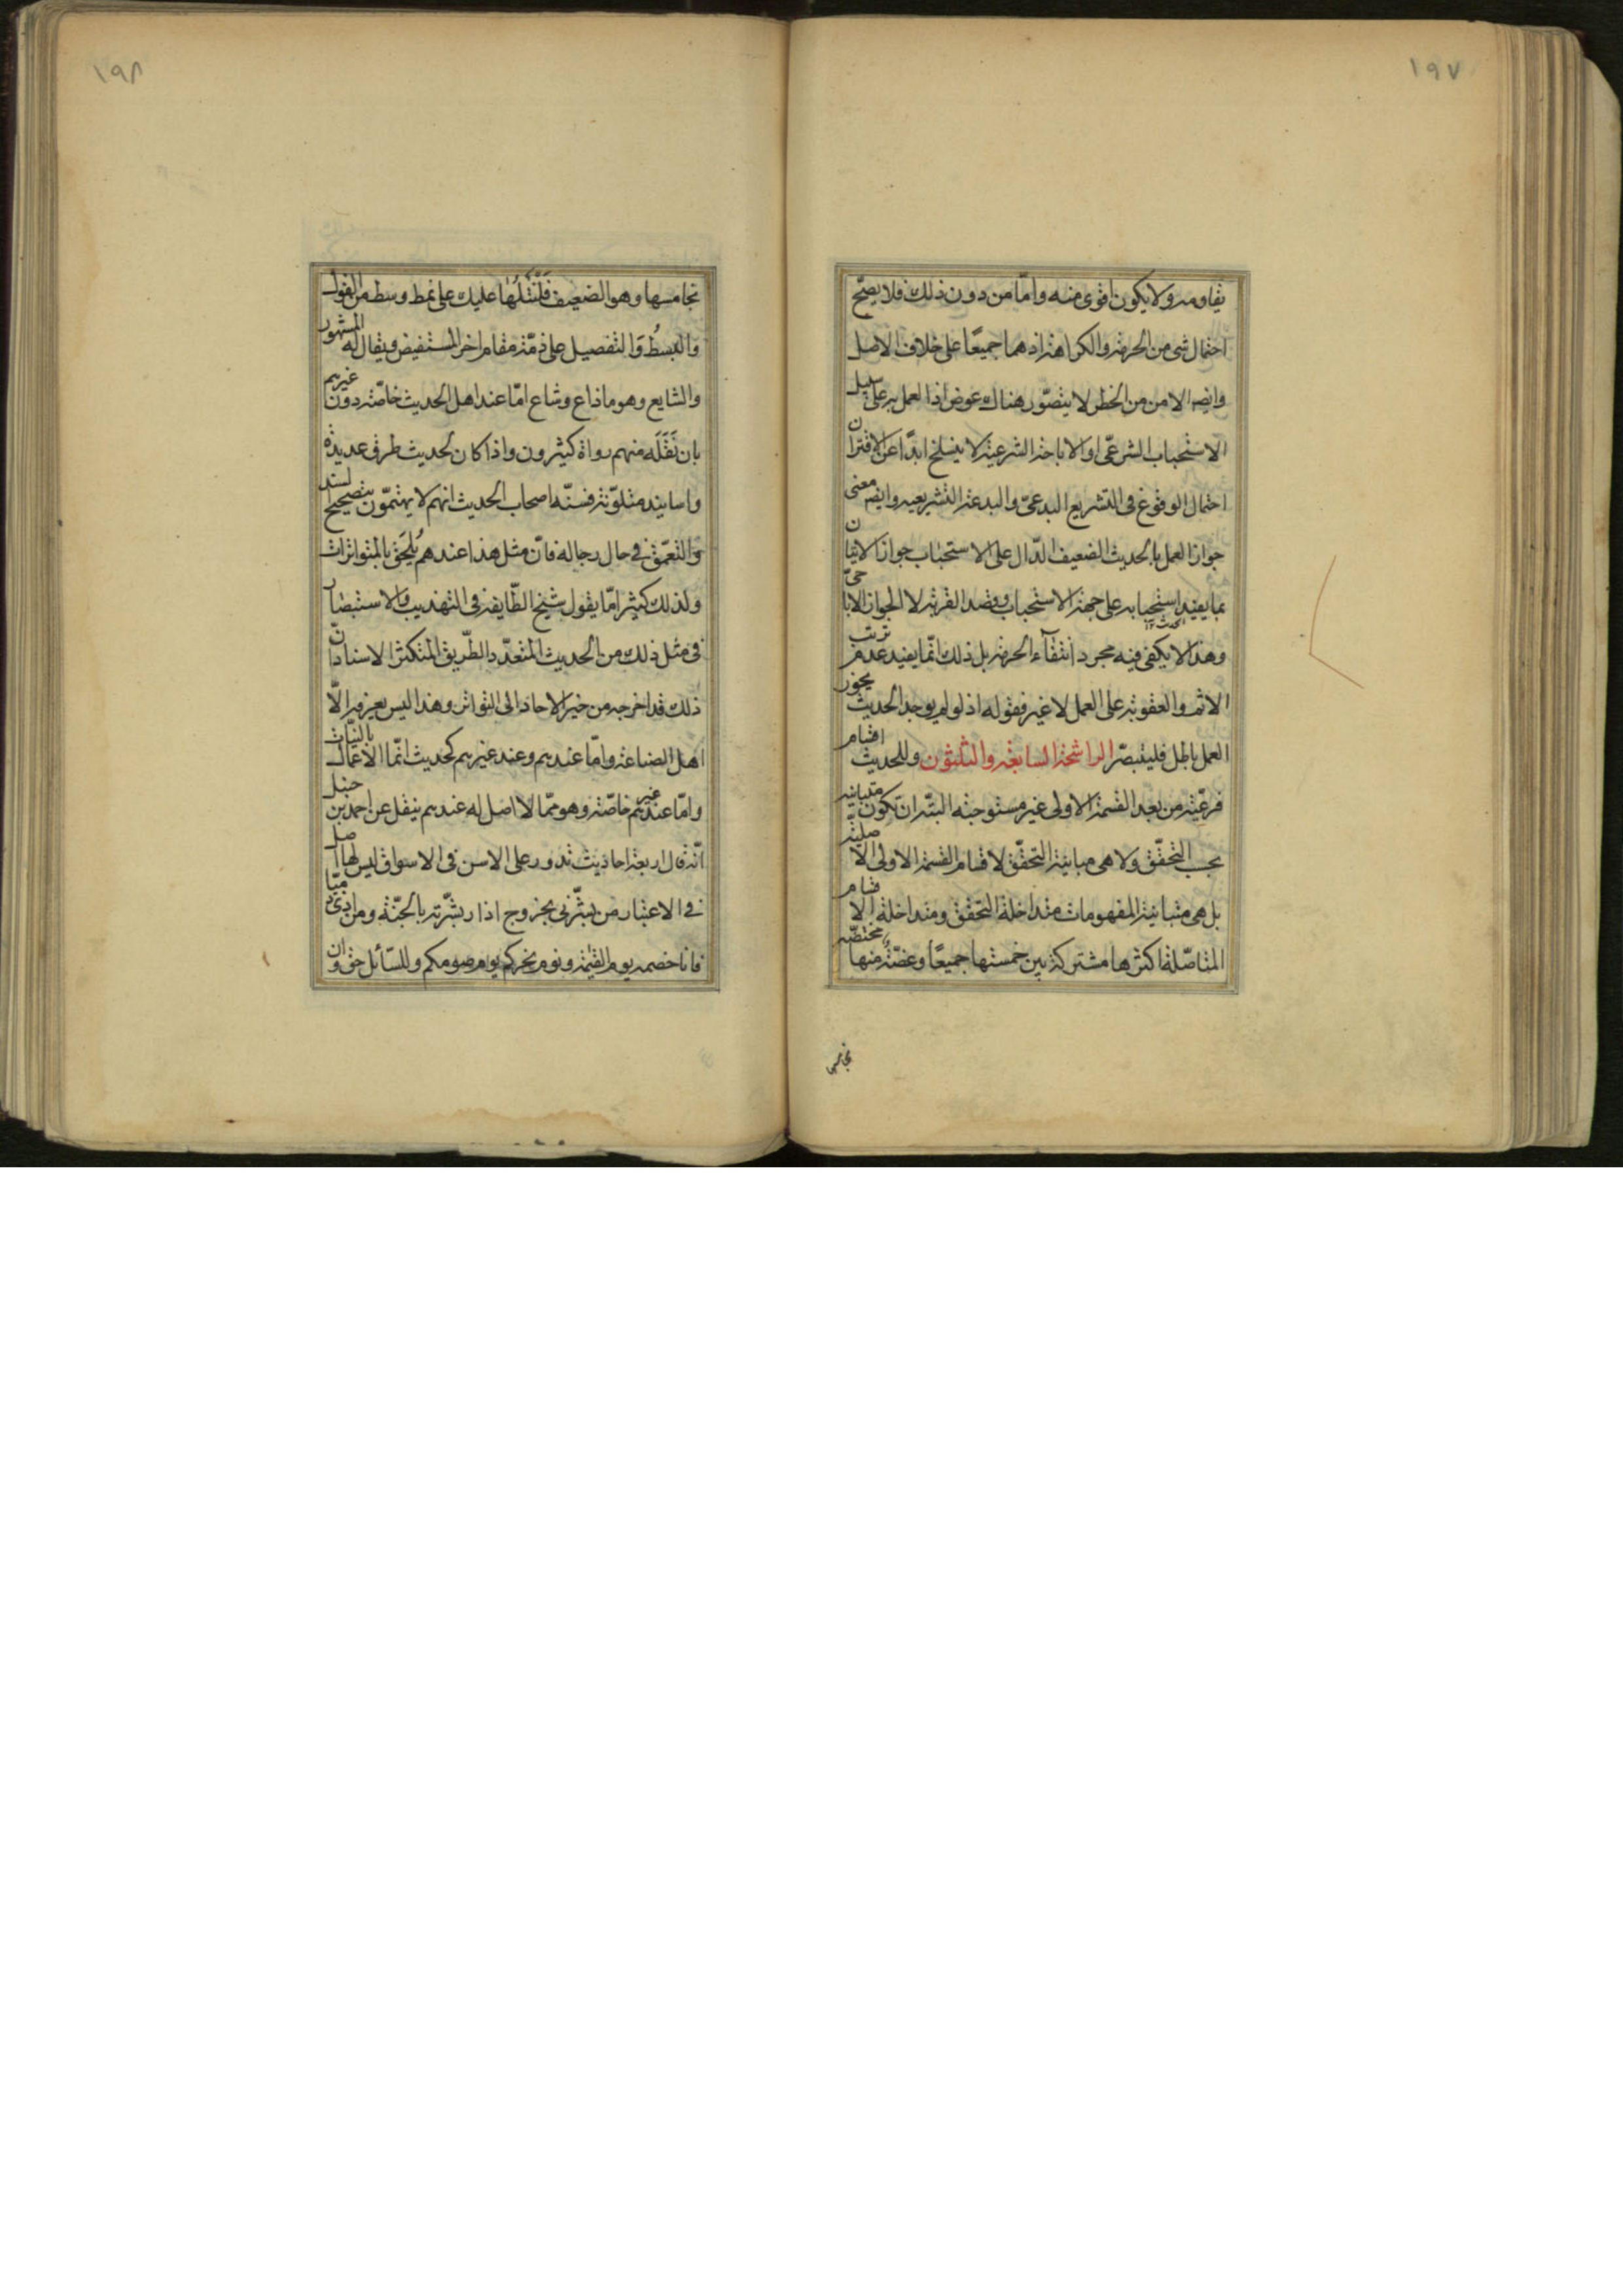 ١٩٧
يقاومه ولا يكون اقوى منه واما من دون ذلك فلا يصح
احتمال شى من الحرمة والكراهة اذ هما جميعًا على خلاف الاصل
وايضا الامن من الخطر لا يتصور هناك عوض اذ العمل به على سبيل
الاستحباب الشرعى او الاباحة الشرعية لا ينسلخ ابدًا عن الاقتران
احتمال الوقوع فى التشريع البدعى والبدعة التشريعيه وايضا معنى
جواز العمل بالحديث الضعيف الدال على الاستحباب جواز الاتيان
بما يفيد استحبابه على جهة الاستحباب وقصد القربة لا الجواز الاباحى
وهذا لا يكفى فيه مجرد انتفآء الحرمة بل ذلك انما يفيد عدم ترتب
الاثم والعقوبة على العمل لا غير فقوله اذ لو لم يوجد الحديث يجوز
العمل باطل فليتبصر الراشحة السابعة والثلثون وللحديث اقسام
فرعية من بعد القسمة الاولى غير مستوجبة البتة ان تكون متباينة
بحب التحقق ولا هى مباينة التحقق لاقسام القسمة الاولى الاصلية
بل هى متباينة المفهومات متداخلة التحقق ومتداخلة الاقسام
المتاصلة اكثرها مشتركة بين خمستها جميعًا وعضة منها مختصة
بخامسها
١٩٨
بخامسها وهو الضعيف فلنتلها عليك على نمط وسط من القول
والبسط والتفصيل على ذمة مقام اخر المستفيض ويقال له المشهور
والشايع وهو ما ذاع وشاع اما عند اهل الحديث خاصة دون غيرهم
بان نقله منهم رواة كثيرون واذا كان لحديث طرق عديدة
واسانيد متلونة فسنة اصحاب الحديث انهم لا يهتمون بتصحيح السند
والتعمق فى حال رجاله فان مثل هذا عندهم يلحق بالمتواترات
ولذلك كثيرا ما يقول شيخ الطايفة فى التهذيب والاستبصار
فى مثل ذلك من الحديث المتعدد الطريق المتكثر الاسناد ان
ذلك قد اخرجه من خبر الاحاد الى التواتر وهذا ليس يعرفه الا
اهل الصناعة واما عندهم وعند غيرهم كحديث انما الاعمال بالنيات
واما عند غيرهم خاصة وهو مما لا اصل له عندهم ينقل عن احمد بن حنبل
انه قال اربعة احاديث تدور على الالسن فى الاسواق ليس لها اصل
فى الاعتبار من بشرنى بخروج اذار بشرته بالجنة ومن اذى ذميا
فانا خصمه يوم القيمة ويوم نحركم يوم صومكم وللسائل حق وان